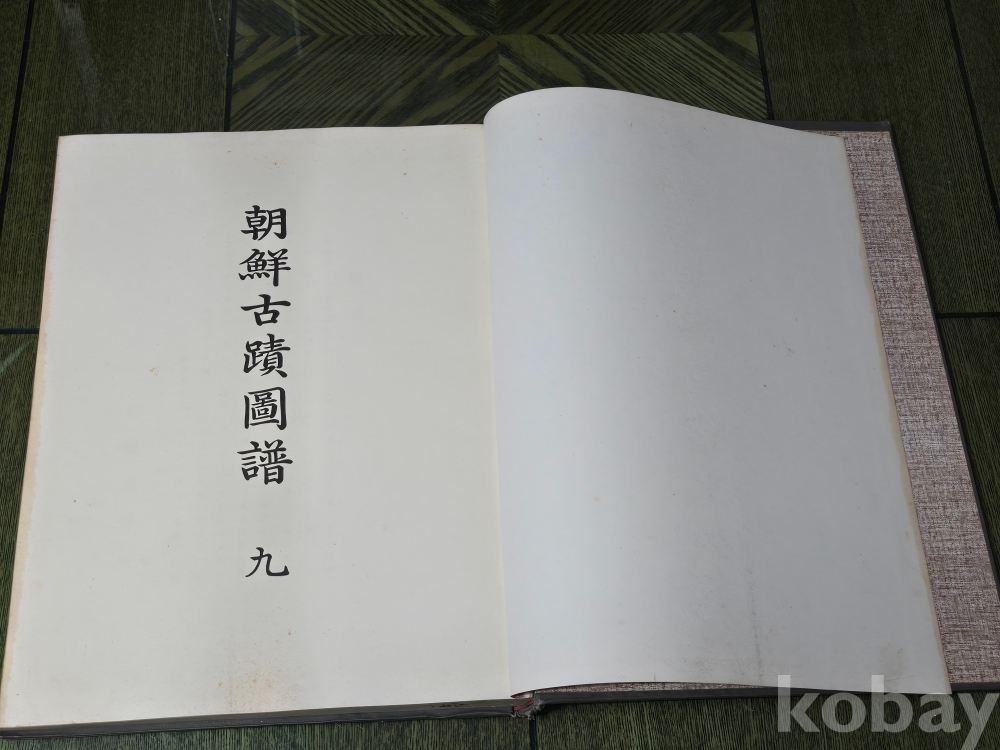 朝鮮古蹟圖譜 九
kobay